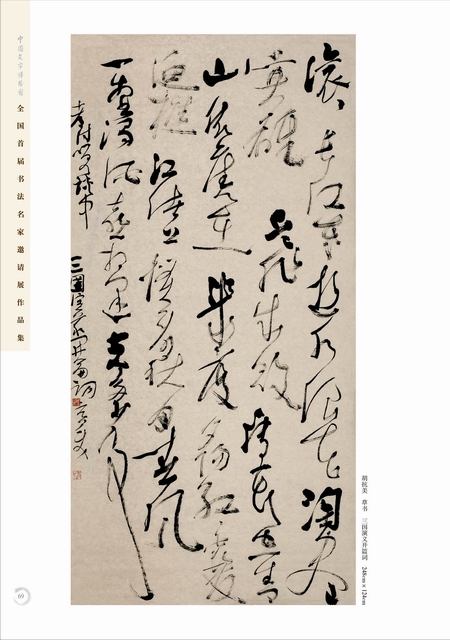 中国文字博物馆
全国首届书法名家邀请展作品集
滚滚长江东逝水浪花淘尽
英雄是非成败转头空青
山依旧在几度夕阳红白发
渔樵江渚上惯看秋月春风
一壶浊酒喜相逢古今多少事
都付笑谈中 三国演义开篇词 抗美
胡抗美 草书 三国演义开篇词 248cm×124cm
69